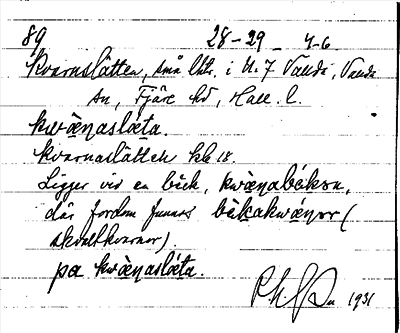 89 28-29 4-6
Kvarnslätten, små lht. i N. 7 Valda, Valda
sn, Fjäre hd, Hall. l.
kwæ̀ṇaslǽta.
kvarnaslätten kb 18.
Ligger vid en bäck, kwæ̀ṇabǽkən,
där fordom funnos bækakwæ̀ṇər (
skvaltkvarnor).
pa kwæ̀ṇaslǽta.
1931